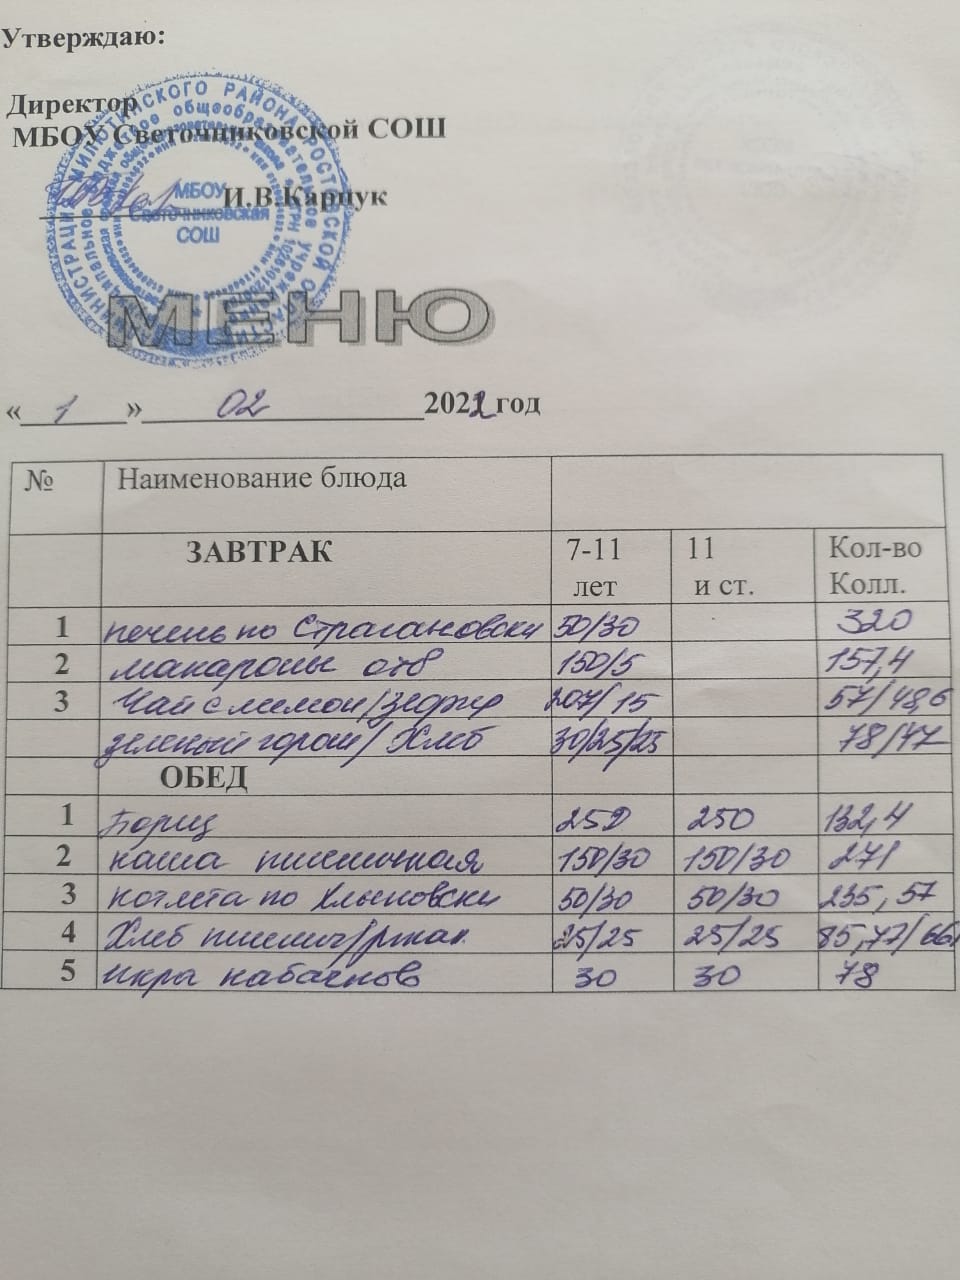 Утверждаю:
Директор
МБОУ Светочниковской СОШ
И.В.Карпук
МБОУ
Светочниковская
СОШ
МЕНЮ
« 1 » 02 2022 год
№ Наименование блюда
ЗАВТРАК 7-11 лет 11 и ст. Кол-во Колл.
1 печень по Страгановски 50/30 320
2 макароны отв 150/5 157,4
3 Чай с лимон/зефир 207/15 57/48,6
зеленый горош/Хлеб 30/25/25 78/47
ОБЕД
1 Борщ 250 250 132,4
2 каша пшеничная 150/30 150/30 271
3 котлета по Хлыновски 50/30 50/30 235,57
4 Хлеб пшенич/ржан. 25/25 25/25 85,77/66
5 икра кабачков 30 30 78